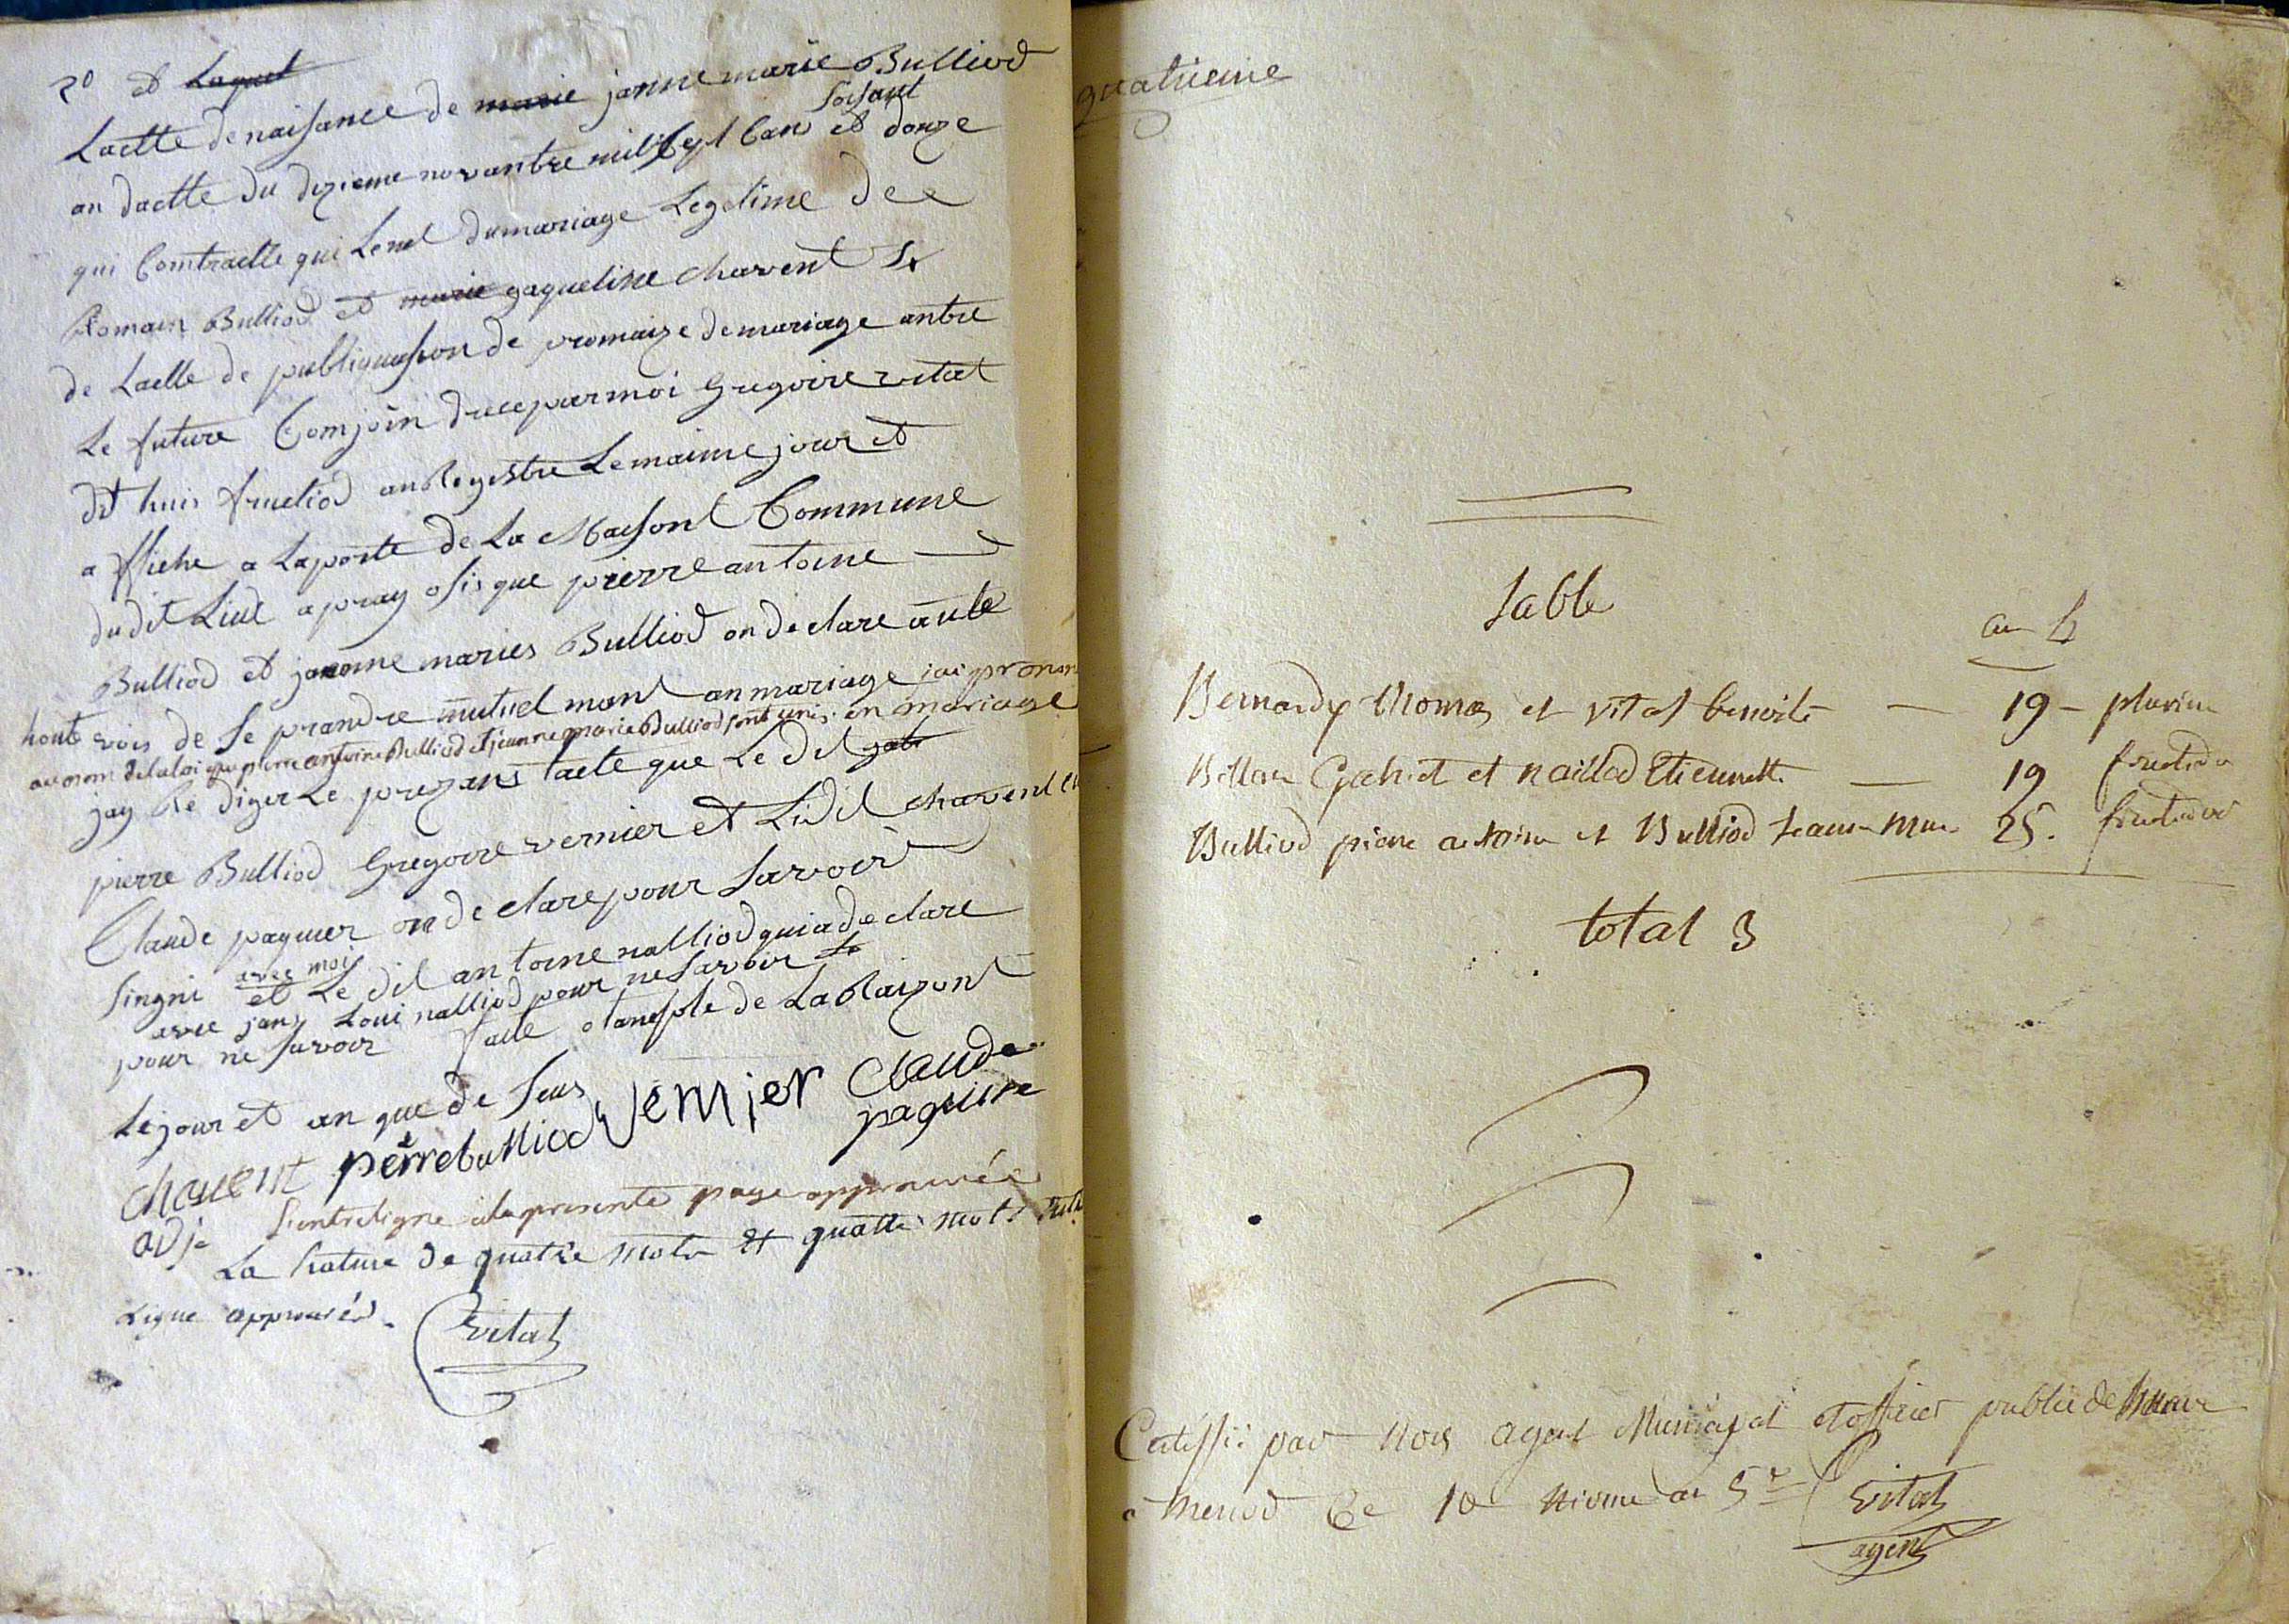 2o et Laquel
Lactte de naisance de marie janne marie Bulliod
soisant
an dactte du dizieme novantre mil sept Can et douze
qui Comtractte qui Lenet du mariage Legetime dee
Romain Bulliod et marie gaqueline Chavent
de Lactte de publiquasion de promaize de mariage antre
Le future Comjoin drece par moi Gregoire vital
dit huis fructiod au Regestre Le maime jour et
a ffiche a La porte de La Maison Commune
du dit Lieu a pray osis que pierre antoine
Bulliod et janne maries Bulliod on de clare a ute
houte vois de Se prandre mutuel mant an mariage jai pronon
au nom de la loi que pierre antoine Bulliod et jeanne marie Bulliod sont unis en mariage
jay Re diger Le prezans tacte que Le dit
pierre Bulliod Gregoire vernier et Ledit chavent et
Claude paquier on de clare pour Savoir
Singni avec moi
et Le dit antoine nalliod qui a de clare
avec jans Loui nalliod pour ne Savoir
pour ne Savoir faite o tanple de La Raizont
Le jour et an que de Sus
chavent pierre bulliod vernier Claude
paquire
adj
L'entreligne a la presente page approuvée
La Rature de quatre mots et quatre mots
Ligne approuvés.
Vital
quatrieme
Table
an 4
Bernardy thomas et vital benoite — 19 – pluviose
Gabriel et naillod Etiennette — 19 fructidor
Bulliod pierre antoine et Bulliod Jeanne Marie 25. fructidor
total 3
Certiffié par Nous agent Municipal et officier public de
a Menod Ce 10 Nivose an 5e
Vital
agent